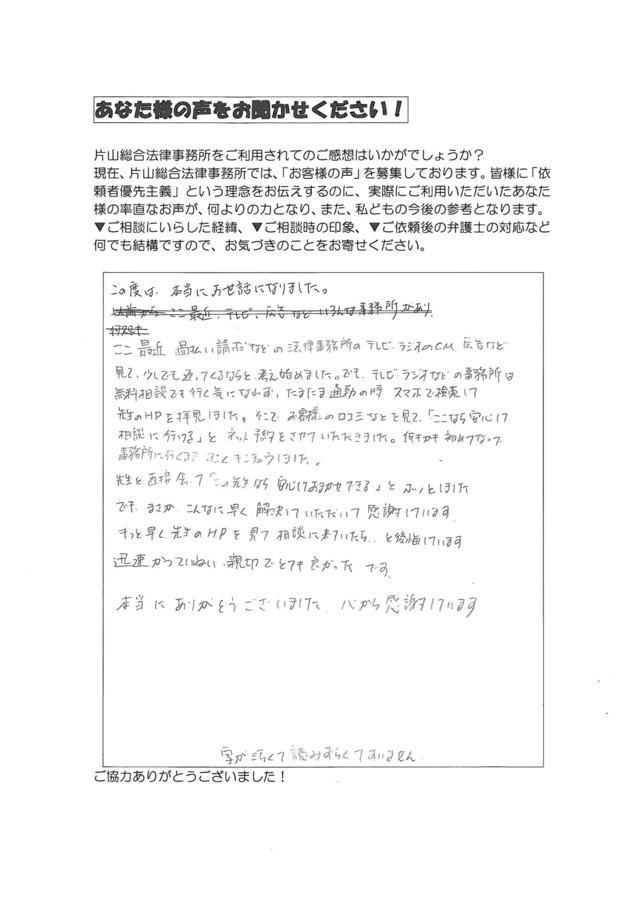 あなた様の声をお聞かせください！
片山総合法律事務所をご利用されてのご感想はいかがでしょうか？
現在、片山総合法律事務所では、「お客様の声」を募集しております。皆様に「依
頼者優先主義」という理念をお伝えするのに、実際にご利用いただいたあなた
様の率直なお声が、何よりの力となり、また、私どもの今後の参考となります。
▼ご相談にいらした経緯、▼ご相談時の印象、▼ご依頼後の弁護士の対応など
何でも結構ですので、お気づきのことをお寄せください。
この度は、本当にお世話になりました。
以前から ここ最近、テレビ、広告など いろんな事務所があり
ここ最近 過払い請求などの法律事務所のテレビ、ラジオのCM 広告など
見て、少しでも返ってくるならと考え始めました。でも、テレビラジオなどの事務所は
無料相談でも行く気になれず、たまたま通勤の時 スマホで検索して
先生のHPを拝見しました。そこで お客様の口コミなどを見て、「ここなら安心して
相談に行ける」と ネット予約をさせていただきました。何もかも初めてなので
事務所に行くまで すごくキンチョウしました。
先生と直接会って「この先生なら 安心しておまかせできる」と ホッとしました
でも、まさか こんなに早く 解決していただいて 感謝しています
もっと早く先生のHPを見て 相談に来ていたら、と後悔しています
迅速かつていねい、親切でとても良かったです
本当に ありがとうございました、心から感謝しています
字が汚くて読みずらくてすいません
ご協力ありがとうございました！